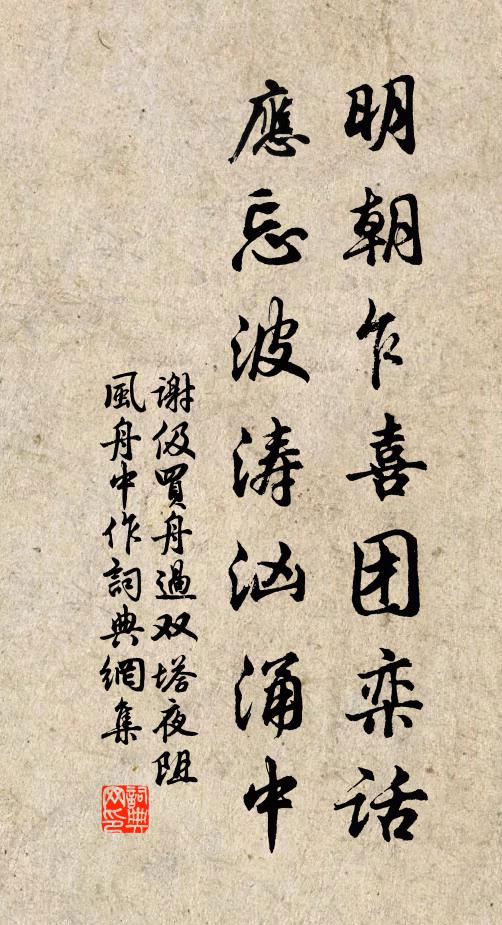 明朝乍喜团栾话
應忘波涛汹涌中
谢伋買舟過双塔夜阻
風舟中作詞典網集
詞典网印